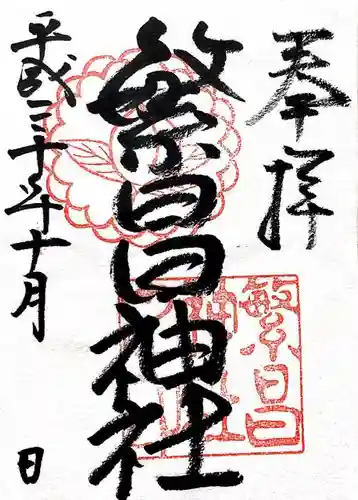 奉拝
繁昌神社
繁昌
神社
平成三十年十月
日